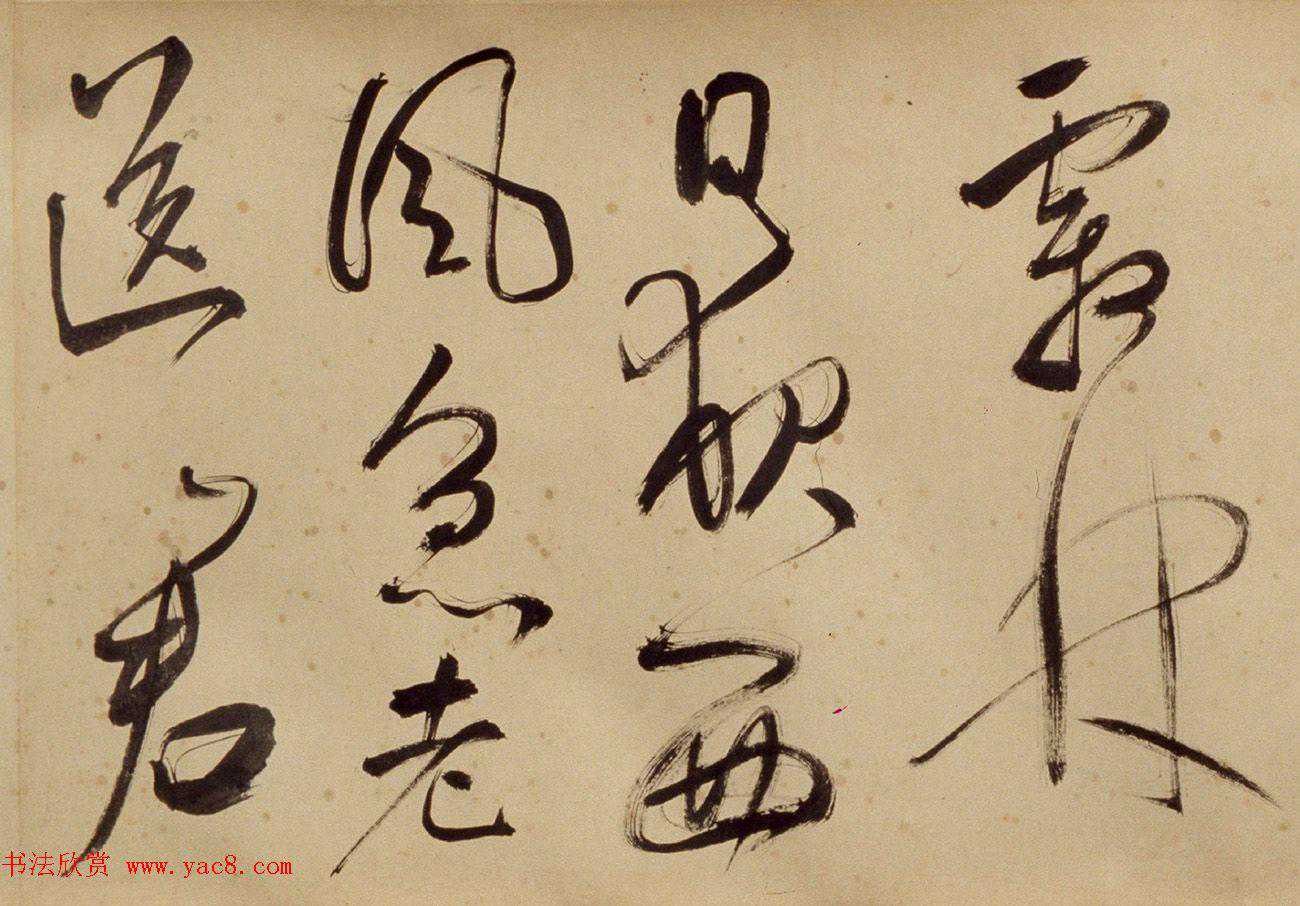 霜林
日 西
風急老
送君
书法欣赏 www.yac8.com